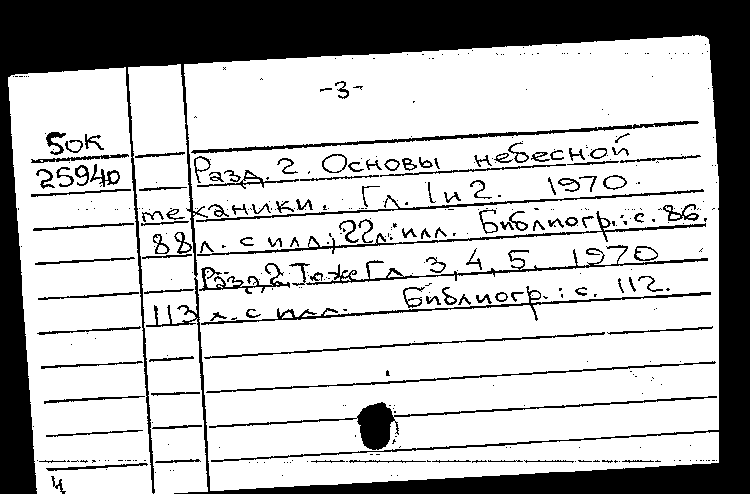 -3-
50К
25940 Разд. 2. Основы небесной
механики. Гл. 1 и 2. 1970.
88 л. с илл.; 22 л. илл. Библиогр.: с. 86.
Разд. 2. То же Гл. 3, 4, 5. 1970
113 л. с илл. Библиогр.: с. 112.